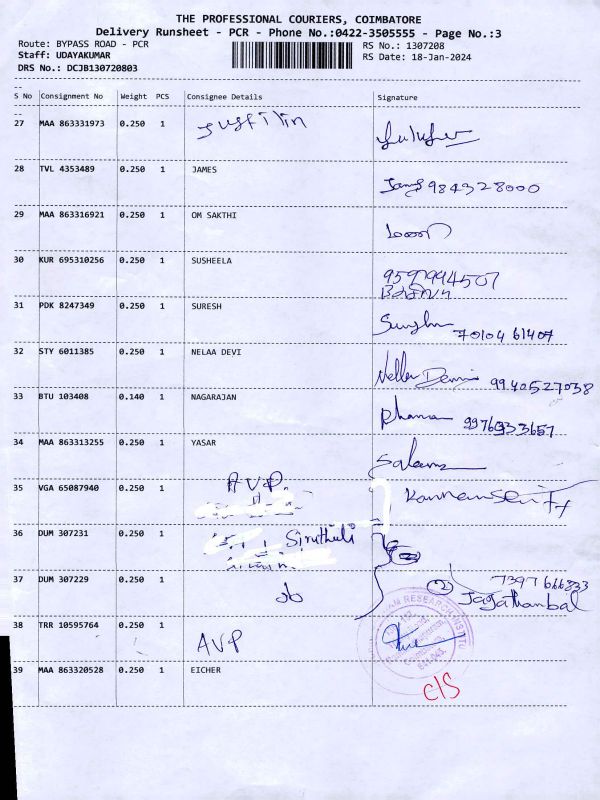 THE PROFESSIONAL COURIERS, COIMBATORE
Delivery Runsheet - PCR - Phone No.:0422-3505555 - Page No.:3
Route: BYPASS ROAD - PCR RS No.: 1307208
Staff: UDAYAKUMAR RS Date: 18-Jan-2024
DRS No.: DCJB130720803
S No Consignment No Weight PCS Consignee Details Signature
27 MAA 863331973 0.250 1
28 TVL 4353489 0.250 1 JAMES
9843228000
29 MAA 863316921 0.250 1 OM SAKTHI
30 KUR 695310256 0.250 1 SUSHEELA
9597994507
31 PDK 8247349 0.250 1 SURESH
70104 61407
32 STY 6011385 0.250 1 NELAA DEVI
99.40527038
33 BTU 103408 0.140 1 NAGARAJAN
9976933657
34 MAA 863313255 0.250 1 YASAR
35 VGA 65087940 0.250 1 AVP.
36 DUM 307231 0.250 1 Siruthuli
37 DUM 307229 0.250 1 do
2 7397 666833
Jagathambal
38 TRR 10595764 0.250 1 AVP
39 MAA 863320528 0.250 1 EICHER
c/s